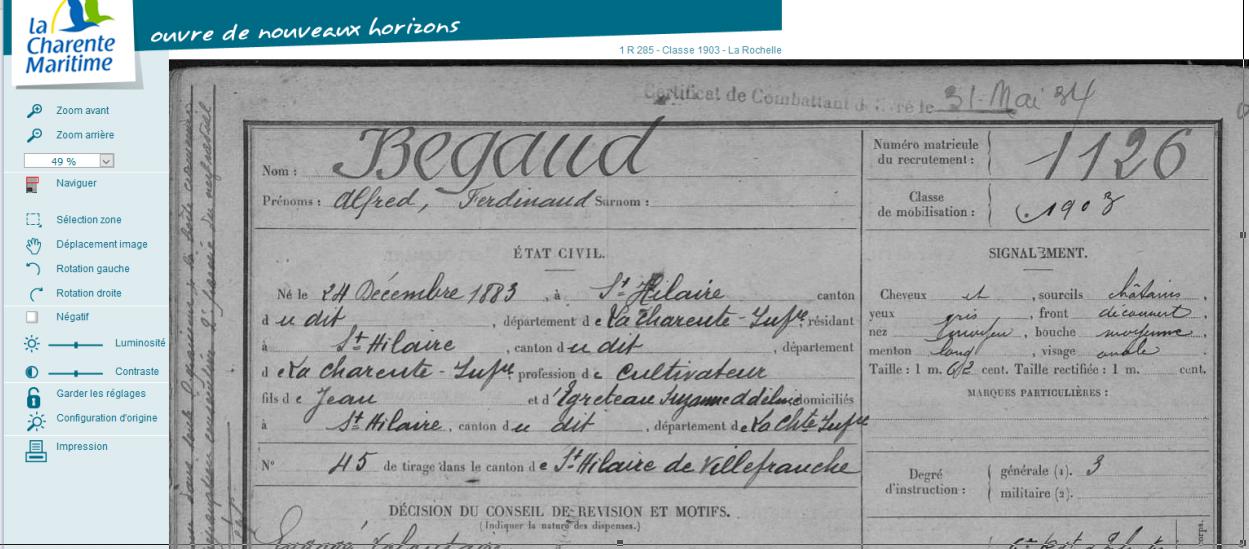 la
Charente
Maritime
ouvre de nouveaux horizons
1 R 285 - Classe 1903 - La Rochelle
Zoom avant
Zoom arrière
49 %
Naviguer
Sélection zone
Déplacement image
Rotation gauche
Rotation droite
Négatif
Luminosité
Contraste
Garder les réglages
Configuration d'origine
Impression
Certificat de Combattant délivré le 31 Mai 34
Nom : Begaud
Prénoms : Alfred, Ferdinand Surnom :
Numéro matricule
du recrutement : 1126
Classe
de mobilisation : 1903
ÉTAT CIVIL.
Né le 24 Décembre 1883, à St Hilaire canton
du dit, département de La Charente-Infre, résidant
à St Hilaire, canton du dit, département
de La Charente-Infre profession de Cultivateur
fils de Jean et d'Egreteau Suzanne Adeline domiciliés
à St Hilaire, canton du dit, département de La Chte Infre
N° 45 de tirage dans le canton de St Hilaire de Villefranche
DÉCISION DU CONSEIL DE REVISION ET MOTIFS.
(Indiquer la nature des dispenses.)
SIGNALEMENT.
Cheveux et, sourcils châtains,
yeux gris, front découvert,
nez moyen, bouche moyenne
menton long, visage ovale
Taille : 1 m. 62 cent. Taille rectifiée : 1 m. cent.
MARQUES PARTICULIÈRES :
Degré
d'instruction :
générale (1). 3
militaire (2).
corps.